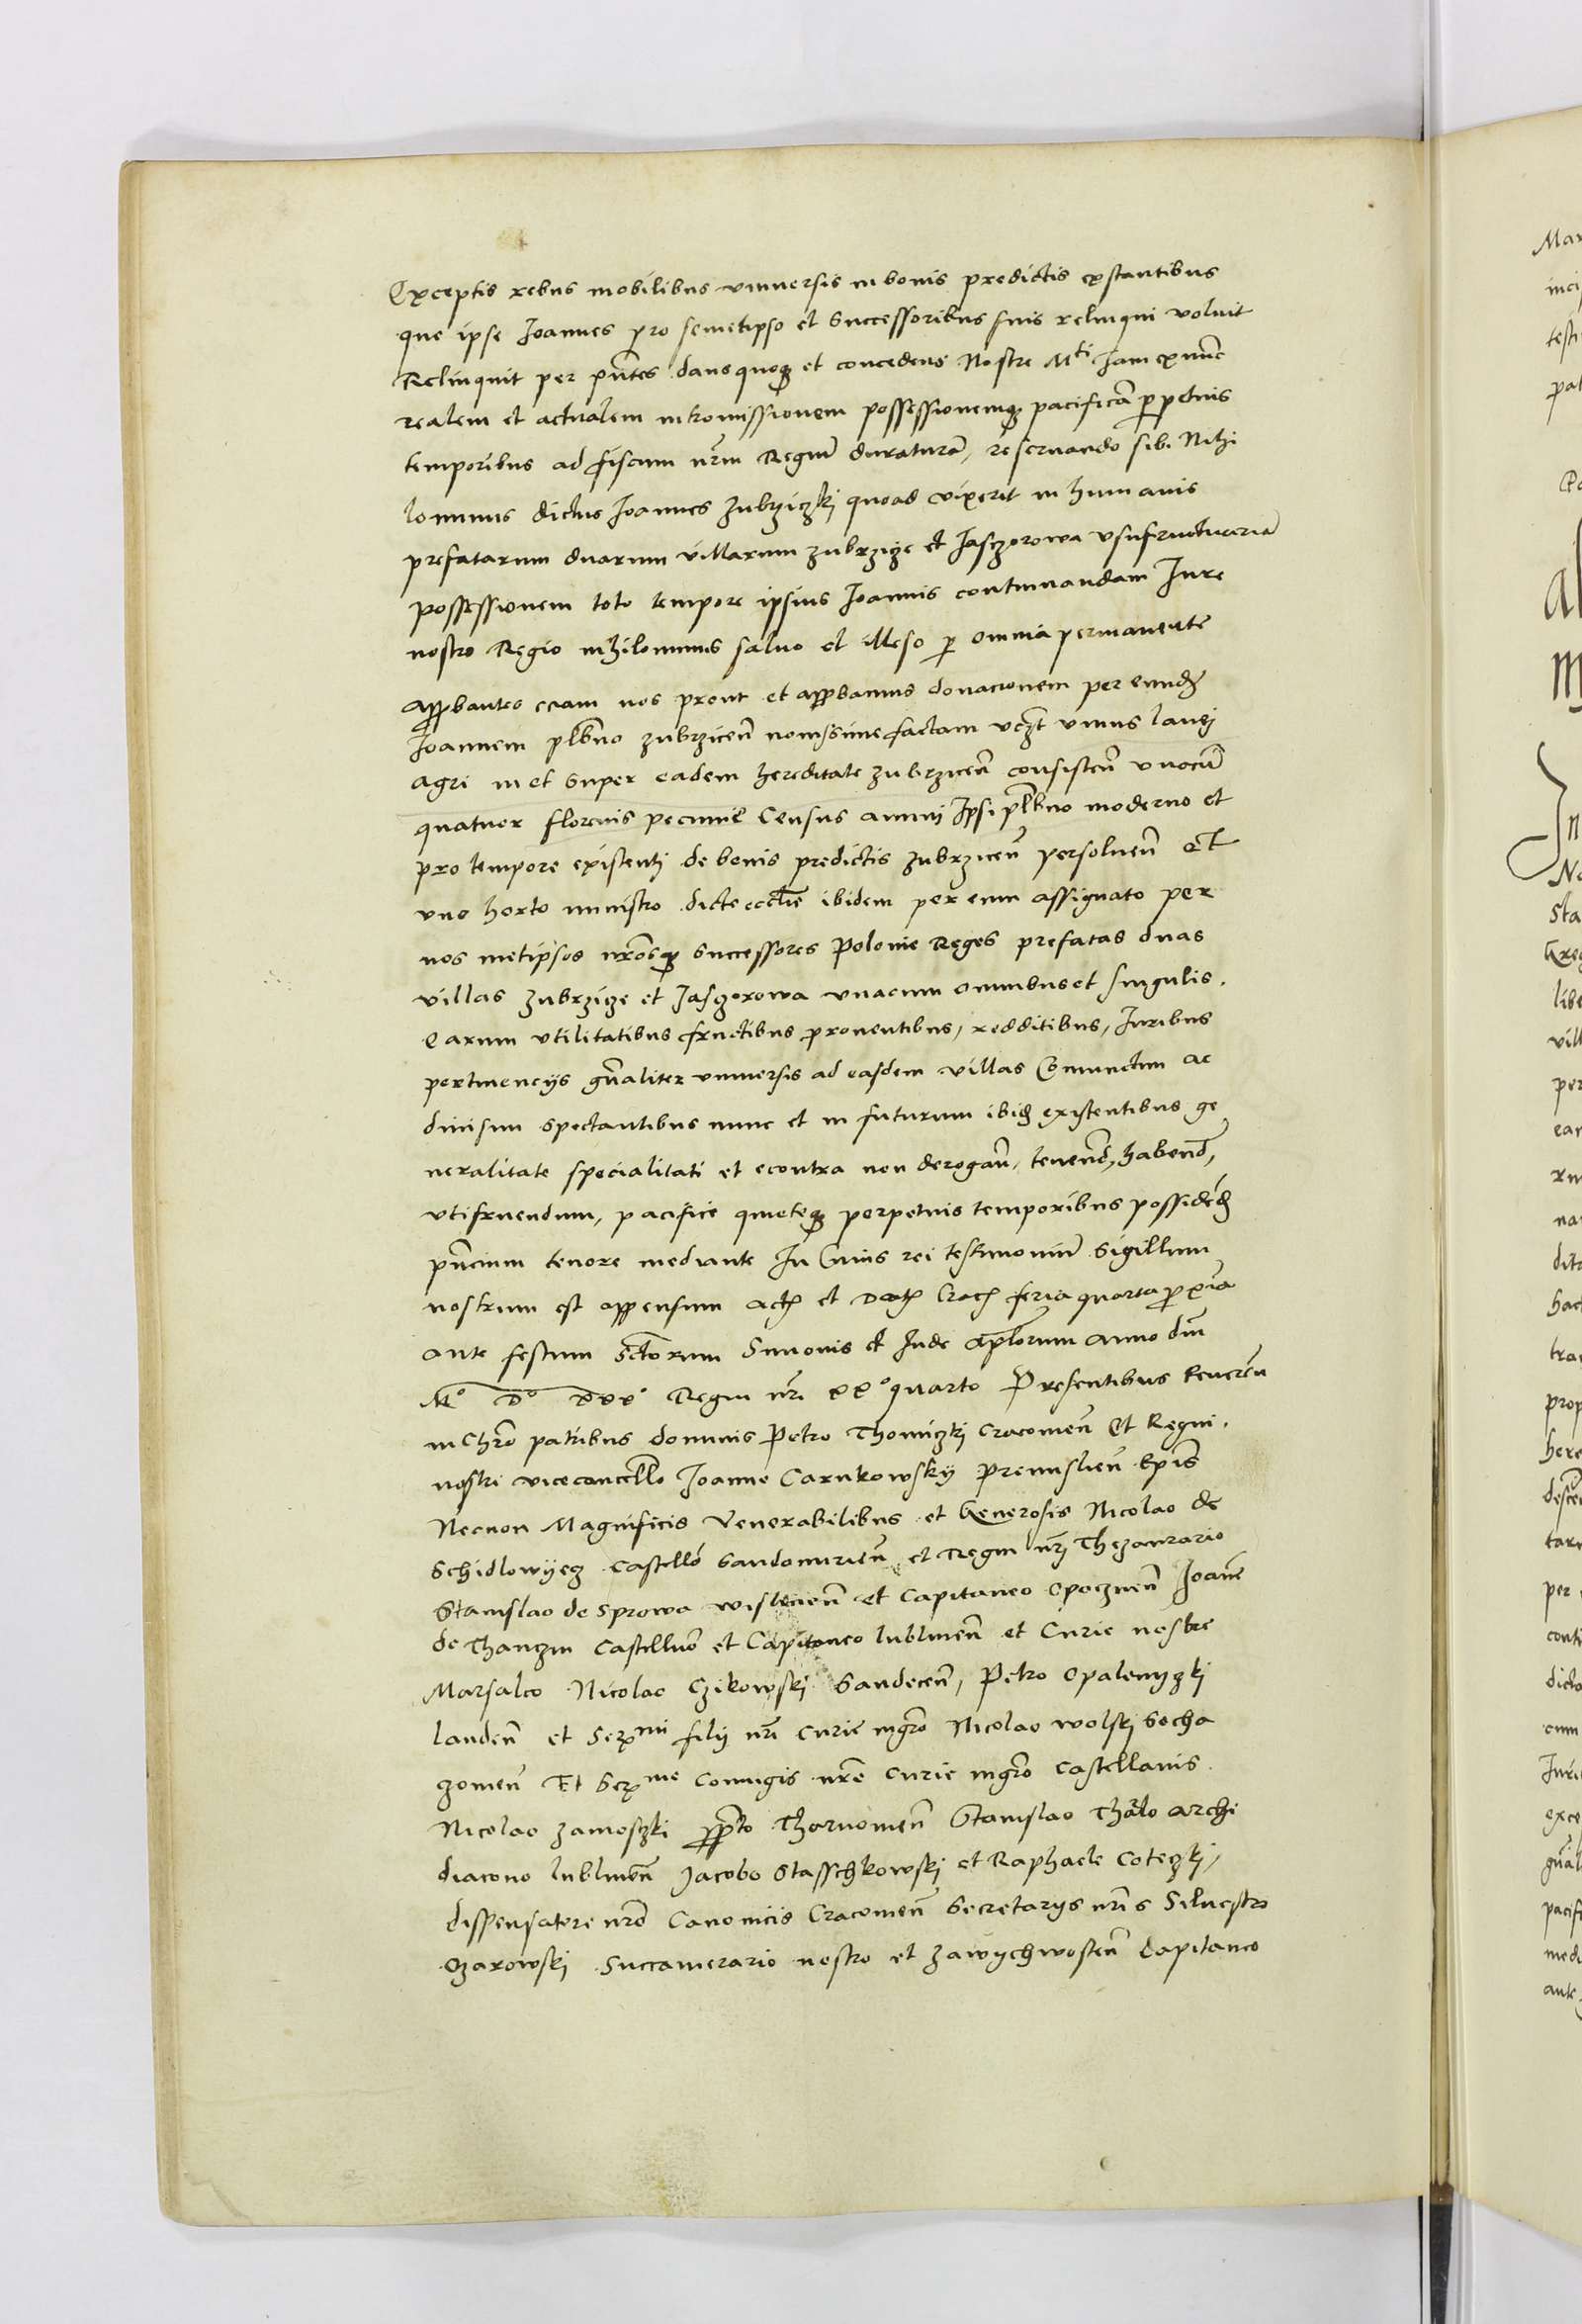 Exceptis rebus mobilibus vniuersis in bonis predictis exstantibus
que ipse Joannes pro semetipso et Successoribus suis relinqui voluit
Relinquit per pñtes dans quoqꝫ et concedens Nostre Mti Jam ex nũc
realem et actualem intromissionem possessionemqꝫ pacificã ꝑpetuis
temporibus ad fiscum nr̃m Regiũ duraturã, reseruando sibi Nihi
lominus dictus Joannes Zubrziczkj quoad vixerit in humanis
prefatarum duarum villarum Zubrzicze et Jasczorowa vsufructuariã
possessionem toto tempore ipsius Joannis continuandam Jure
nostro Regio nihilominus saluo et illeso ꝑ omnia permanente
Approbantes eciam nos prout et approbamus donacionem per eundẽ
Joannem plb̃no Zubrzicen̄ nouissime factam vcꝫt vnius lanej
Agri in et super eadem hereditate Zubrzicen̄ consisten̄ vnacũ
quatuor florenis pecunie Census annuj Ipsi plb̃no moderno et
pro tempore existentj de bonis predictis Zubrzicen̄ persoluen̄ Et
vno horto ministro dicte eccl̃ie ibidem per eum assignato per
nos metipsos nr̃osqꝫ Successores Polonie Reges prefatas duas
villas Zubrzicze et Jasczorowa vnacum omnibus et singulis.
Earum vtilitatibus fructibus prouentibus, redditibus, Juribus
pertinencijs gñaliter vniuersis ad easdem villas Coniunctim ac
diuisim spectantibus nunc et in futurum ibidẽ existentibus ge
neralitate specialitati et econtra non derogan̄, tenend̄, habend̄,
vtifruendum, pacifice quieteqꝫ perpetuis temporibus possidẽdẽ
pñcium tenore mediante In Cuius rei testimoniũ Sigillum
nostrum est appensum Actꝫ et Datꝫ Cracꝫ feria quarta ꝓxĩa
ante festum Sctorum Simonis et Jude Apl̃orum Anno dñi
Mo Do xxxo Regni nr̃i xxo quarto Presentibus Reueren̄
in Chr̃o patribus dominis Petro Thomiczkj Cracouien̄ Et Regni.
nostri vicecancell̃o Joanne Carnkowskij Premislien̄ Epĩs
Necnon Magnificis Venerabilibus et Generosis Nicolao de
Schidlowijecz Castell̃o Sandomirien̄ et Regni nr̃j Thezaurario
Stanislao de Sprowa wislicien̄ et Capitaneo Opocznen̄ Joanẽ
de Thanczin Castell̃uo et Capitaneo lublinen̄ et Curie nostre
Marsalco Nicolao Czikowskj Sandecen̄, Petro Opalenyczkj
landen̄ et Serꝫmi filij nr̃i Curie mgr̃o Nicolao wolskj Socha
czouien̄ Et Serꝫme Coniugis nr̃e Curie mgr̃o Castellanis.
Nicolao Zamosczkj ppto Tharnouien̄ Stanislao Tharlo Archi
diacono lublinen̄ Jacobo Stasschkowskj et Raphaele Coteczkj,
dispensatore nr̃o Canonicis Cracouien̄ Secretarijs nr̃is Siluestro
Ozarowskj Succamerario nostro et Zawychwosten̄ Capitaneo